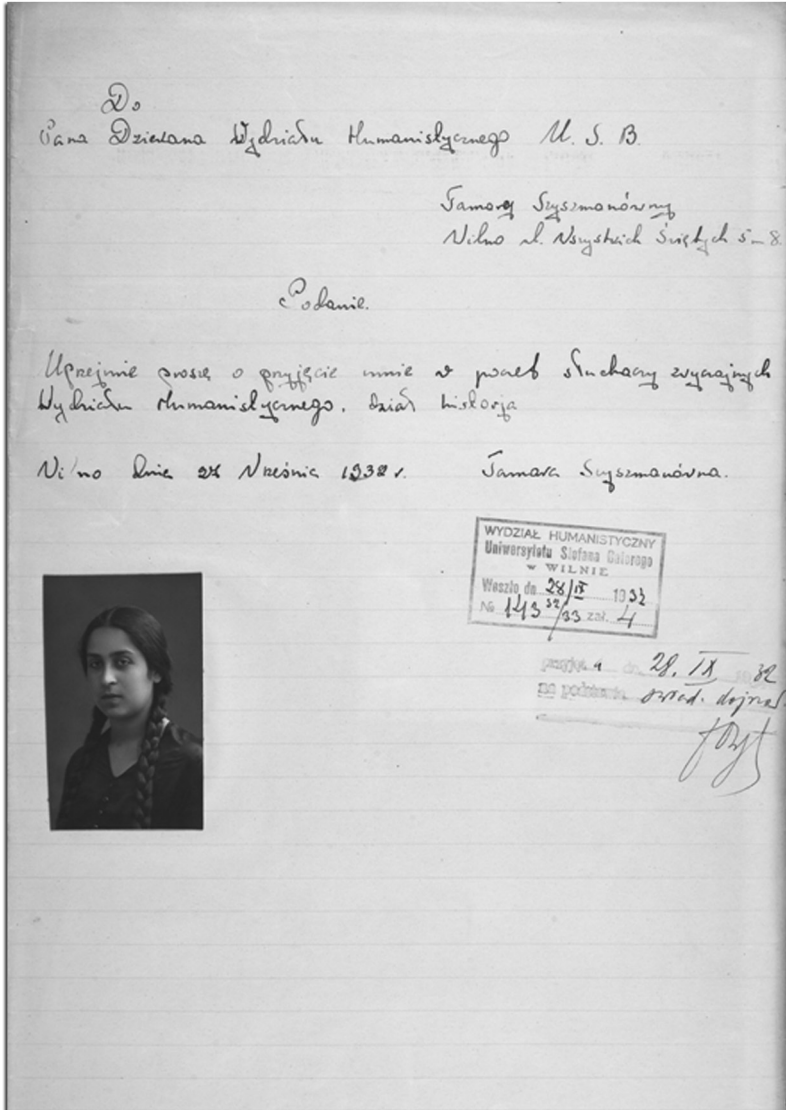 Do
Pana Dziekana Wydziału Humanistycznego U. S. B.
Tamary Szyszmanówny
Wilno ul. Wszystkich Świętych 5 m 8.
Podanie.
Uprzejmie proszę o przyjęcie mnie w poczet słuchaczy zwyczajnych
Wydziału Humanistycznego. dział historja
Wilno dnia Września 1932 r. Tamara Szyszmanówna.
WYDZIAŁ HUMANISTYCZNY
Uniwersytetu Stefana Batorego
w WILNIE
Weszło dn. 28/IX 1932
№ 143 32/33 zał. 4
przyjęta dn. 28. IX 1932
na podstawie świad. dojrzał.